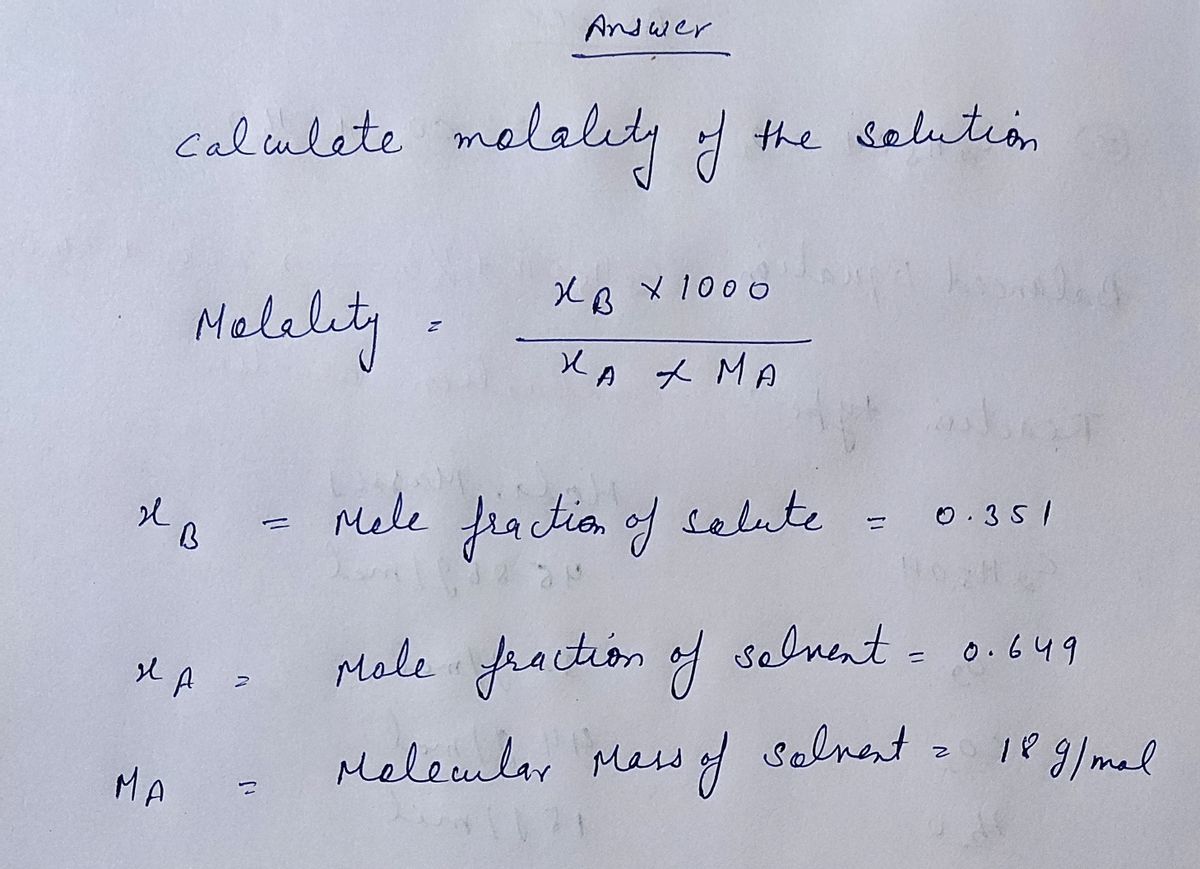 Answer
calculate molality of the solution
Molality = xB × 1000
xA × MA
xB = Mole fraction of solute = 0.351
xA = Mole fraction of solvent = 0.649
MA = Molecular Mass of solvent = 18 g/mol